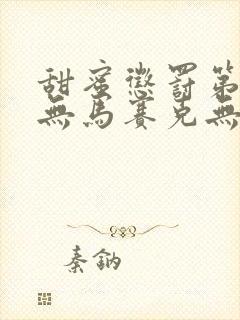 甜蜜懲罰第
無馬賽克無
秦鈉